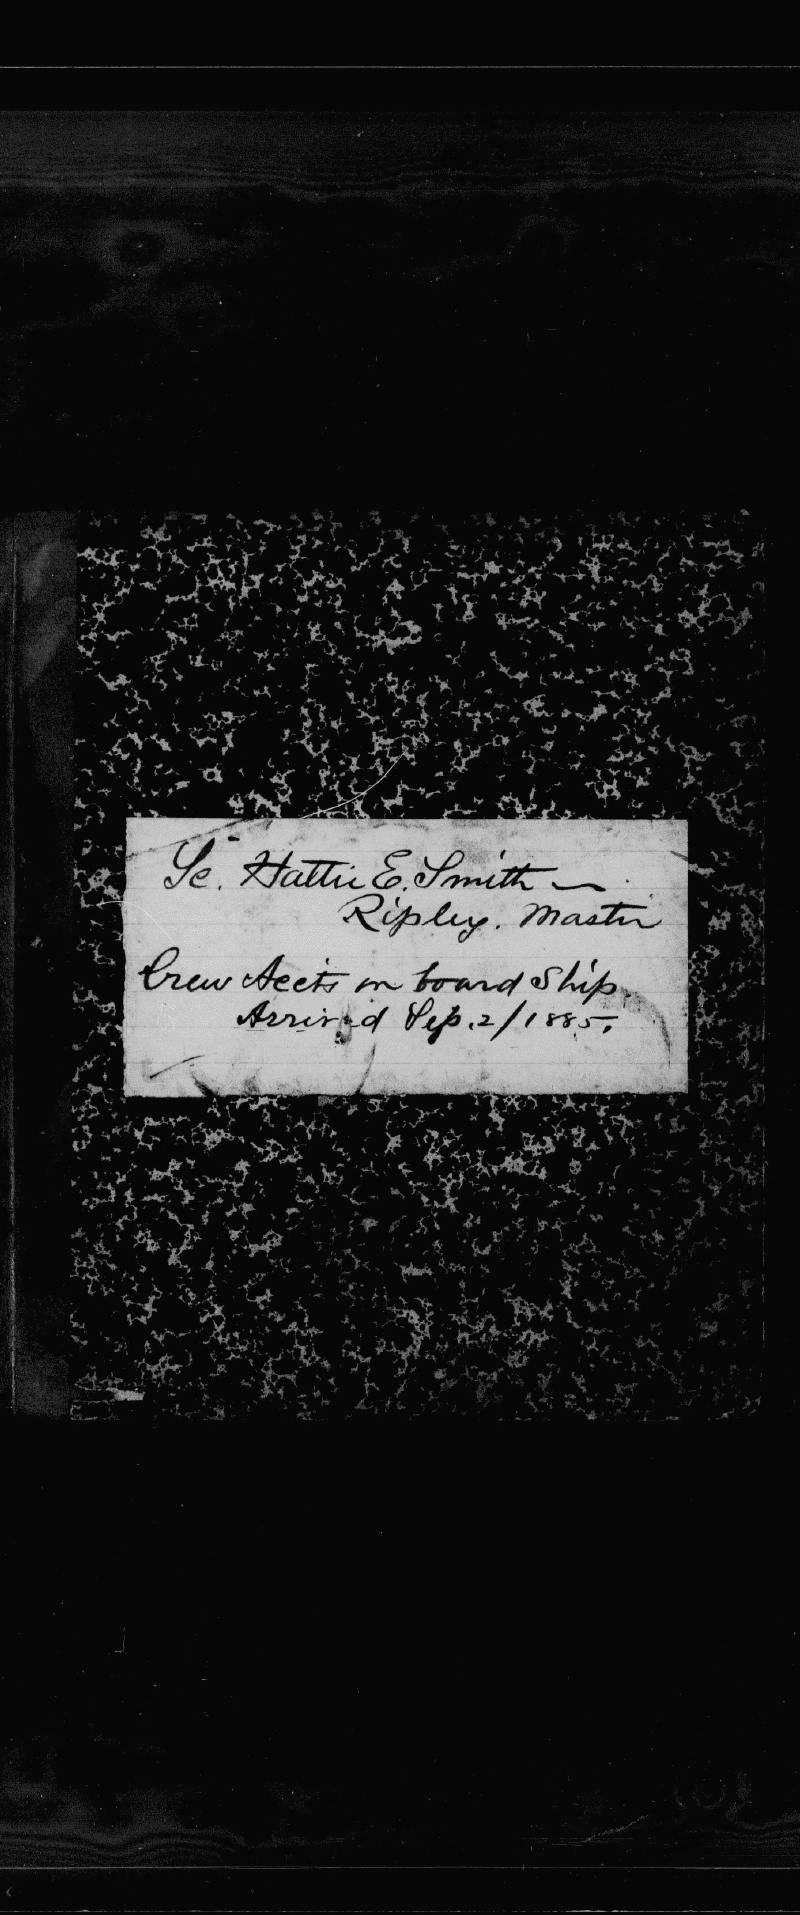 Sc. Hattie E. Smith —
Ripley. Master
Crew Accts on board Ship.
Arrived Sep. 2/1885.